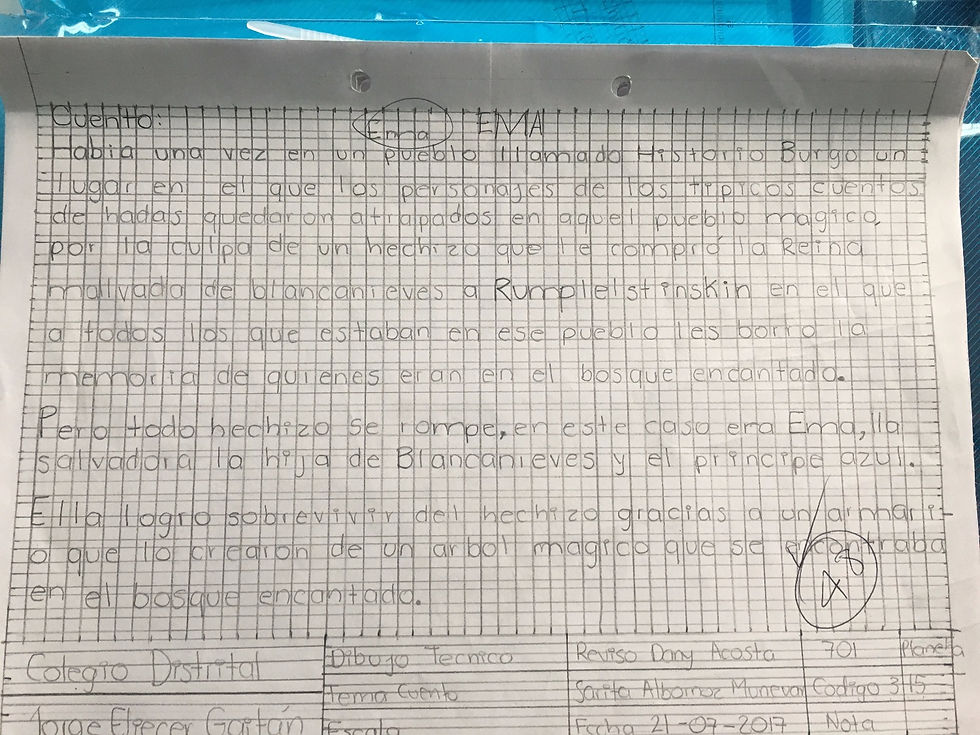 Cuento: Ema EMA
Habia una vez en un pueblo llamado Historio Burgo un
lugar en el que los personages de los tipicos cuentos
de hadas quedaron atrapados en aquel pueblo magico,
por la culpa de un hechizo que le compró la Reina
malvada de blancanieves a Rumplelstinskin en el que
a todos los que estaban en ese pueblo les borro la
memoria de quienes eran en el bosque encantado.
Pero todo hechizo se rompe, en este caso era Ema, la
salvadora la hija de Blancanieves y el principe azul.
Ella logro sobrevivir del hechizo gracias a un armarit-
o que lo crearon de un arbol magico que se encontraba
en el bosque encantado.
Colegio Distrital
Jorge Eliecer Gaitán
Dibujo Tecnico
Tema Cuento
Escala
Reviso Dany Acosta
Sarita Albornoz Munevar
Fecha 21-07-2017
701
Codigo 3
Nota
Plancha
15